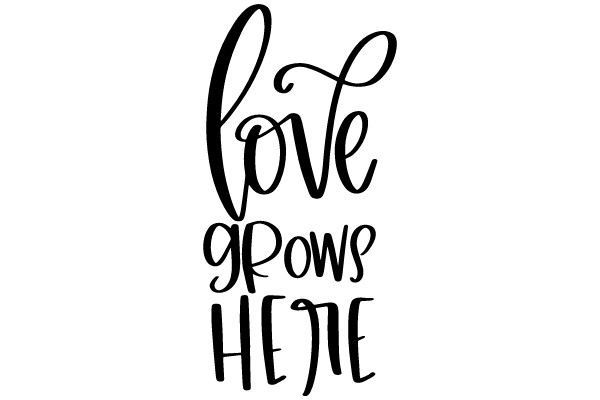 love
gRows
HERE